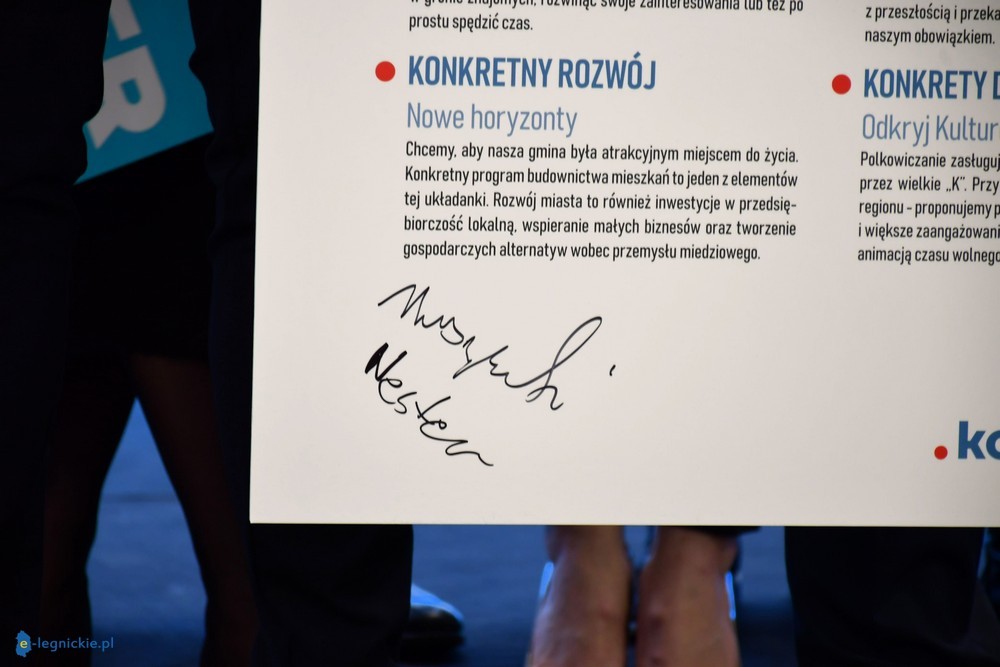 w gronie znajomych, rozwinąć swoje zainteresowania lub też po
prostu spędzić czas.
KONKRETNY ROZWÓJ
Nowe horyzonty
Chcemy, aby nasza gmina była atrakcyjnym miejscem do życia.
Konkretny program budownictwa mieszkań to jeden z elementów
tej układanki. Rozwój miasta to również inwestycje w przedsię-
biorczość lokalną, wspieranie małych biznesów oraz tworzenie
gospodarczych alternatyw wobec przemysłu miedziowego.
z przeszłością i przeka
naszym obowiązkiem.
KONKRETY D
Odkryj Kultur
Polkowiczanie zasługuj
przez wielkie „K”. Przy
regionu - proponujemy p
i większe zaangażowani
animacją czasu wolnego
.ko
ER
e-legnickie.pl